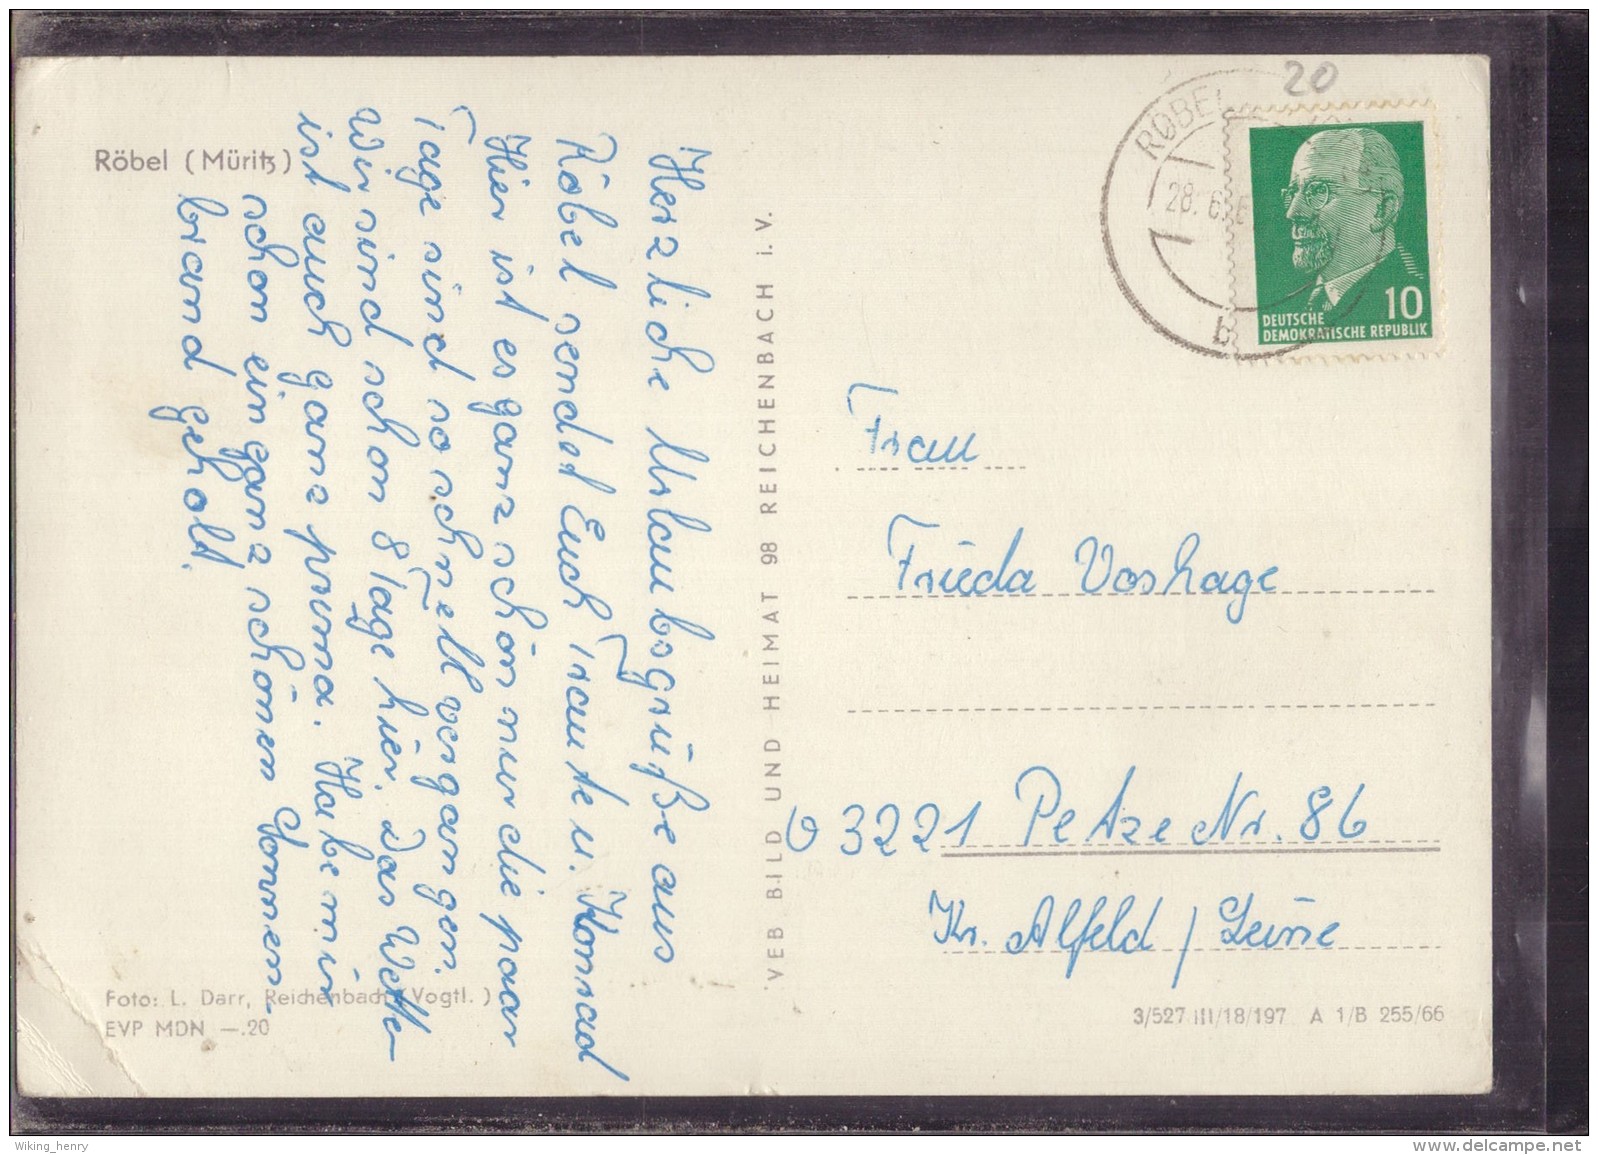 Röbel (Müritz)
Herzliche Urlaubsgrüße aus
Röbel sendet Euch Traute u. Konrad
Hier ist es ganz schön nur die paar
Tage sind so schnell vergangen.
Wir sind schon 8 Tage hier. Das Wetter
ist auch ganz prima. Habe mir
schon ein ganz schönen Sonnen-
brand geholt.
Foto: L. Darr, Reichenbach (Vogtl.)
EVP MDN —.20
VEB BILD UND HEIMAT 98 REICHENBACH i. V.
20
RÖBEL
28. 6.
b
10
DEUTSCHE
DEMOKRATISCHE REPUBLIK
Frau
Frieda Voshage
3221 Petze Nr. 86
Kr. Alfeld / Leine
3/527 III/18/197 A 1/B 255/66
Wiking_henry
www.delcampe.net